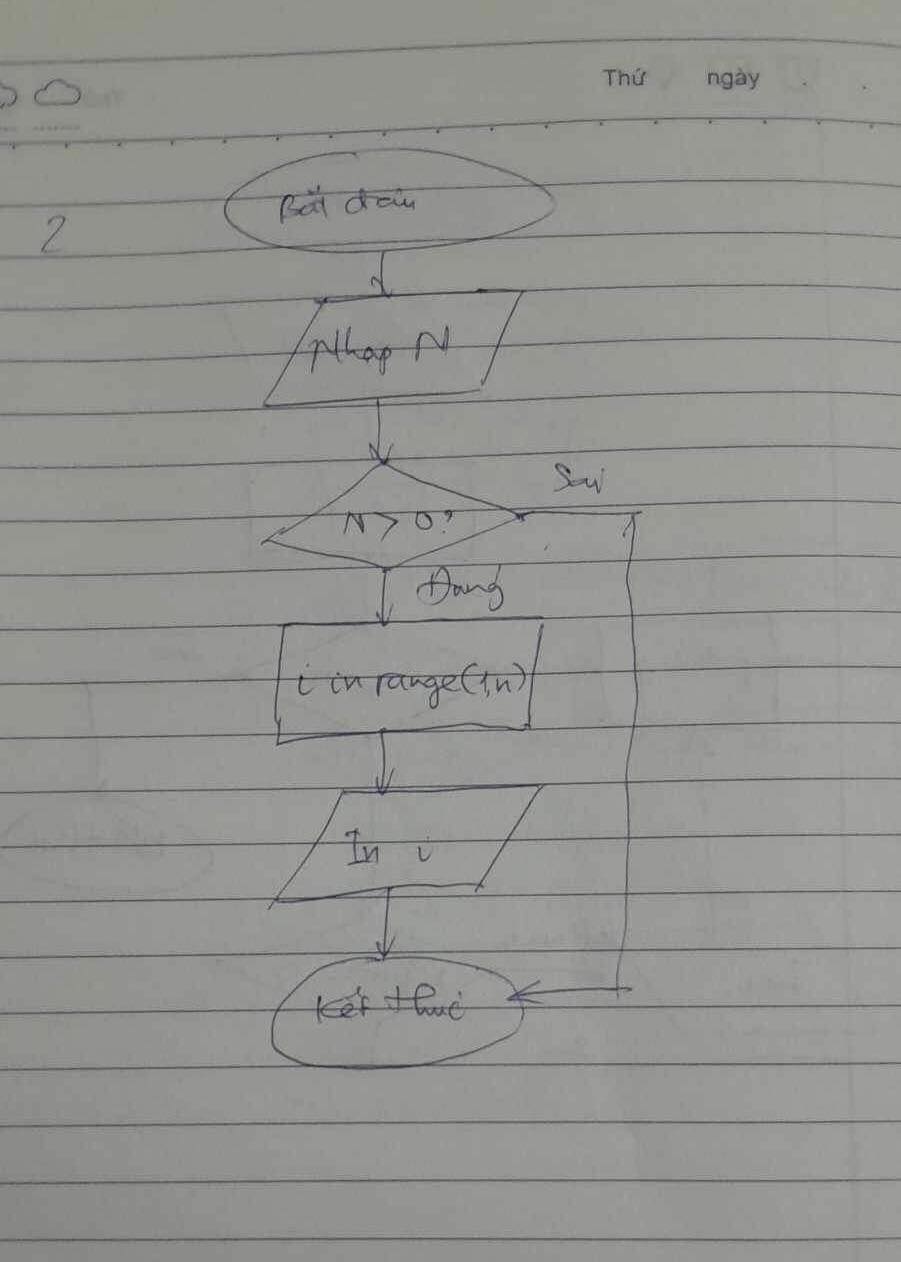 Thứ ngày . .
2
Bắt đầu
Nhập N
N > 0?
Sai
Đúng
i in range(1,n)
In i
Kết thúc